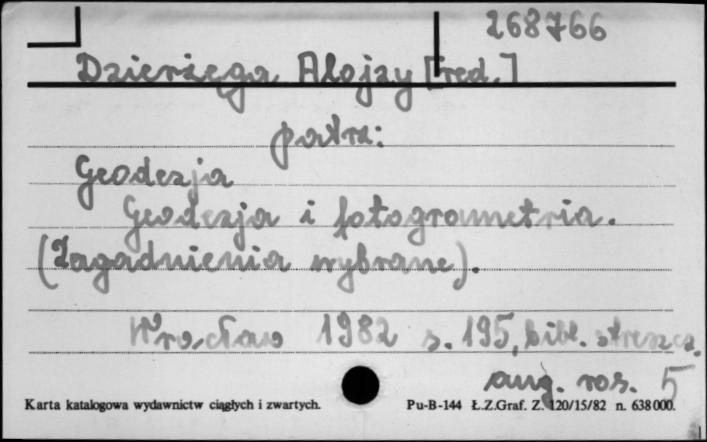 268766
Dzierżęga Alojzy [red.]
patrz:
Geodezja
Geodezja i fotogrametria.
(Zagadnienia wybrane).
Wrocław 1982 s. 195, bibl. streszcz.
ang. ros. 5
Karta katalogowa wydawnictw ciągłych i zwartych.
Pu-B-144 Ł.Z.Graf. Z. 120/15/82 n. 638000.